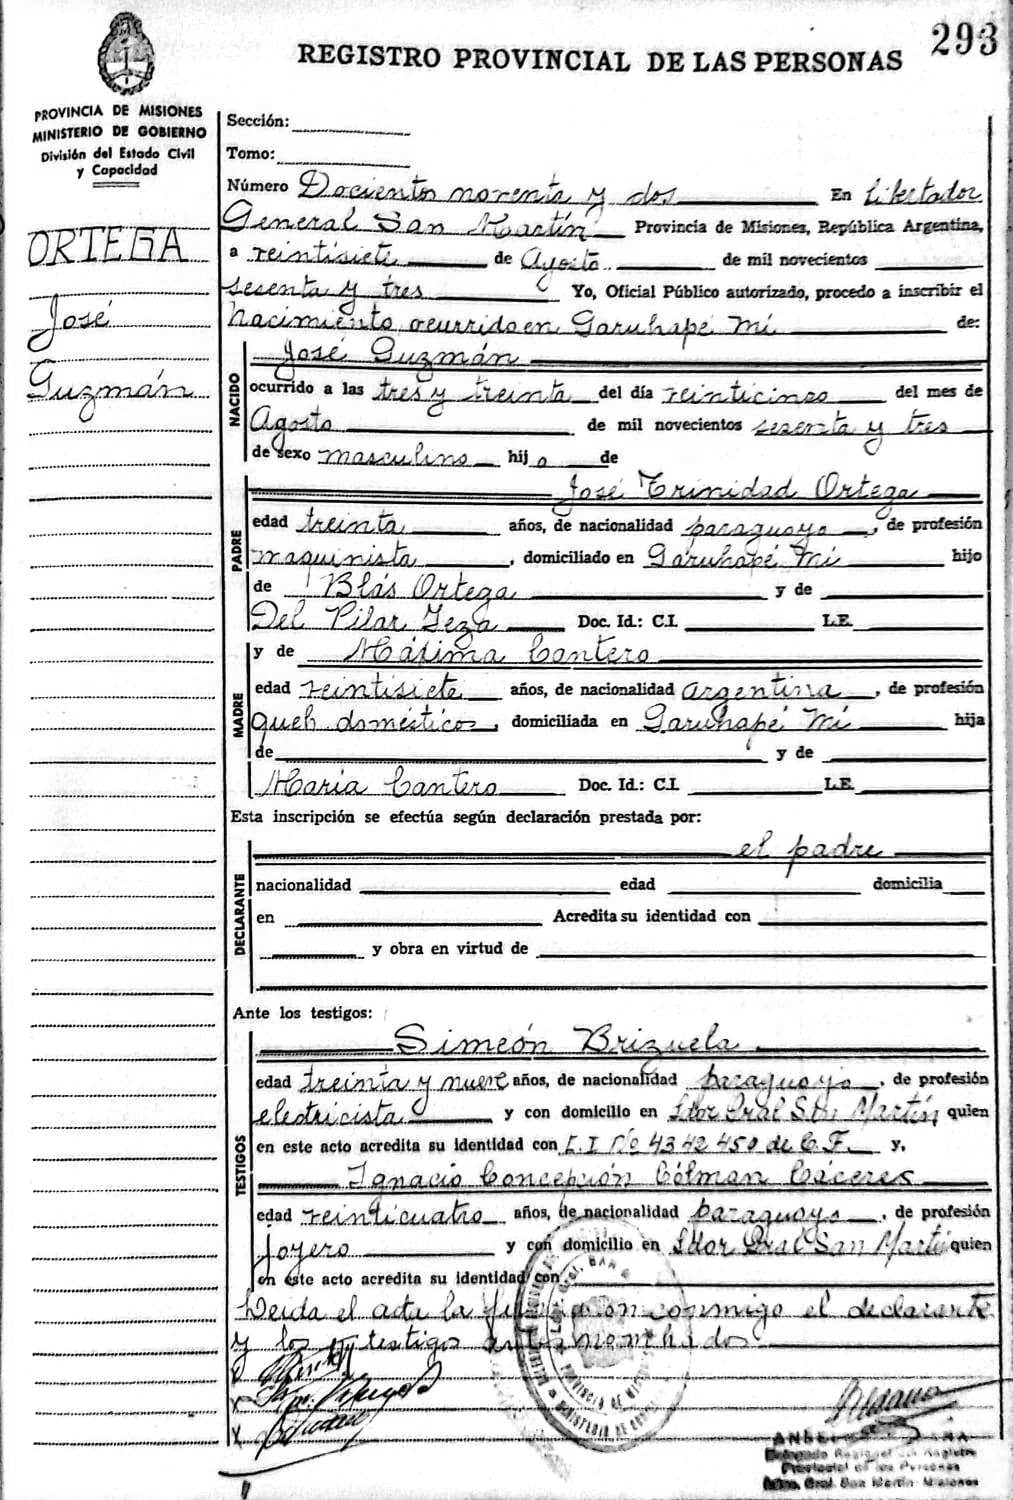 293
REGISTRO PROVINCIAL DE LAS PERSONAS
PROVINCIA DE MISIONES
MINISTERIO DE GOBIERNO
División del Estado Civil
y Capacidad
ORTEGA
José
Guzmán
Sección:
Tomo:
Número Docientos noventa y dos En Libertador
General San Martín Provincia de Misiones, República Argentina,
a veintisiete de Agosto de mil novecientos
sesenta y tres Yo, Oficial Público autorizado, procedo a inscribir el
nacimiento ocurrido en Garuhapé Mí de:
NACIDO
José Guzmán
ocurrido a las tres y treinta del día veinticinco del mes de
Agosto de mil novecientos sesenta y tres
de sexo masculino hijo de
PADRE
José Trinidad Ortega
edad treinta años, de nacionalidad paraguaya, de profesión
maquinista, domiciliado en Garuhapé Mí hijo
de Blás Ortega y de
Del Pilar Doc. Id.: C.I. L.E.
MADRE
y de Máxima Cantero
edad veintisiete años, de nacionalidad argentina, de profesión
queh. domésticos, domiciliada en Garuhapé Mí hija
de y de
María Cantero Doc. Id.: C.I. L.E.
Esta inscripción se efectúa según declaración prestada por:
DECLARANTE
el padre
nacionalidad edad domicilia
en Acredita su identidad con
y obra en virtud de
Ante los testigos:
TESTIGOS
Simeón Brizuela
edad treinta y nueve años, de nacionalidad paraguayo, de profesión
electricista y con domicilio en Ldor Gral San Martín quien
en este acto acredita su identidad con C.I Nº 4342450 de C.F. y,
Ignacio Concepción Cólman Cáceres
edad veinticuatro años, de nacionalidad paraguayo, de profesión
joyero y con domicilio en Ldor Gral San Martín quien
en este acto acredita su identidad con
Leida el acta la firman conmigo el declarante
y los testigos antes nombrados
Delegado Regional del Registro
Provincial de las Personas
Ldor. Gral. San Martín - Misiones